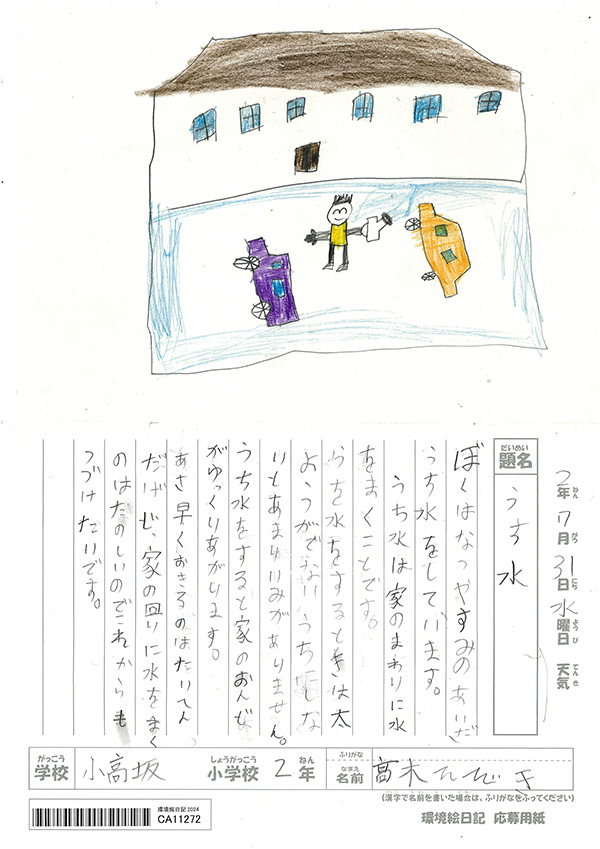 2年 7月 31日 水曜日 天気
ねん がつ にち ようび てんき
だいめい
題名
うち水
ぼくはなつやすみのあいだ
うち水をしています。
うち水は家のまわりに水
をまくことです。
うち水をするときは太
ようがでないうちにしな
いとあまりいみがありません。
うち水をすると家のおんど
がゆっくりあがります。
あさ早くおきるのはたいへん
だけど、家の回りに水をまく
のはたのしいのでこれからも
つづけたいです。
がっこう しょうがっこう ねん ふりがな なまえ
学校 小高坂 小学校 2年 名前 高木ひびき
(漢字で名前を書いた場合は、ふりがなをふってください)
環境絵日記2024
CA11272
環境絵日記 応募用紙